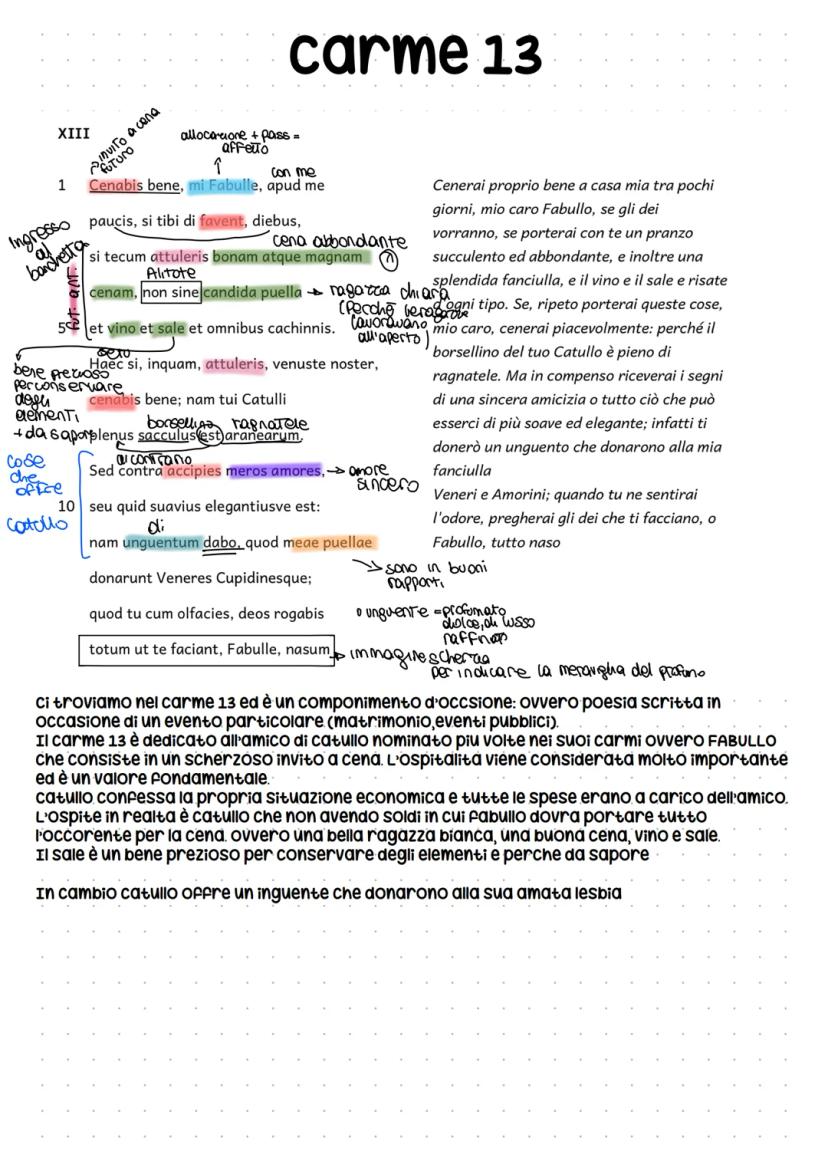 Carme 13
XIII
invito a cena
futuro
allocazione + pass =
affetto
con me
1 Cenabis bene, mi Fabulle, apud me
paucis, si tibi di favent, diebus,
Ingresso
al
banchetto
cena abbondante
si tecum attuleris bonam atque magnam
fut. ant.
Alitote
cenam, non sine candida puella → ragazza chiara
(perché
lavoravano
all'aperto)
5 et vino et sale et omnibus cachinnis.
Haec si, inquam, attuleris, venuste noster,
bene prezioso
per conservare
degli
elementi
+ da sapore
cenabis bene; nam tui Catulli
borsellino ragnatele
plenus sacculus est aranearum.
al contrario
Sed contra accipies meros amores, → amore
sincero
cose
che
offre
Catullo
10 seu quid suavius elegantiusve est:
di
nam unguentum dabo, quod meae puellae
sono in buoni
rapporti
donarunt Veneres Cupidinesque;
quod tu cum olfacies, deos rogabis
unguente = profumato
dolce, di lusso
raffinato
totum ut te faciant, Fabulle, nasum → immagine scherza
per indicare la meraviglia del profumo
Cenerai proprio bene a casa mia tra pochi
giorni, mio caro Fabullo, se gli dei
vorranno, se porterai con te un pranzo
succulento ed abbondante, e inoltre una
splendida fanciulla, e il vino e il sale e risate
d'ogni tipo. Se, ripeto porterai queste cose,
mio caro, cenerai piacevolmente: perché il
borsellino del tuo Catullo è pieno di
ragnatele. Ma in compenso riceverai i segni
di una sincera amicizia o tutto ciò che può
esserci di più soave ed elegante; infatti ti
donerò un unguento che donarono alla mia
fanciulla
Veneri e Amorini; quando tu ne sentirai
l'odore, pregherai gli dei che ti facciano, o
Fabullo, tutto naso
Ci troviamo nel carme 13 ed è un componimento d'occsione: ovvero poesia scritta in
occasione di un evento particolare (matrimonio,eventi pubblici).
Il carme 13 è dedicato all'amico di catullo nominato piu volte nei suoi carmi ovvero FABULLO
che consiste in un scherzoso invito a cena. L'ospitalità viene considerata molto importante
ed è un valore fondamentale.
catullo confessa la propria situazione economica e tutte le spese erano a carico dell'amico.
L'ospite in realta è catullo che non avendo soldi in cui fabullo dovra portare tutto
l'occorente per la cena. ovvero una bella ragazza bianca, una buona cena, vino e sale.
Il sale è un bene prezioso per conservare degli elementi e perche da sapore
In cambio catullo offre un inguente che donarono alla sua amata lesbia